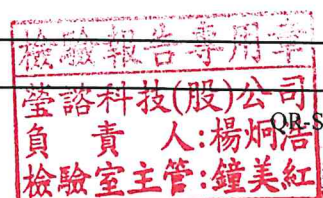 檢驗報告專用章
瑩諮科技(股)公司
負責人:楊炯浩
QR-S
檢驗室主管:鐘美紅